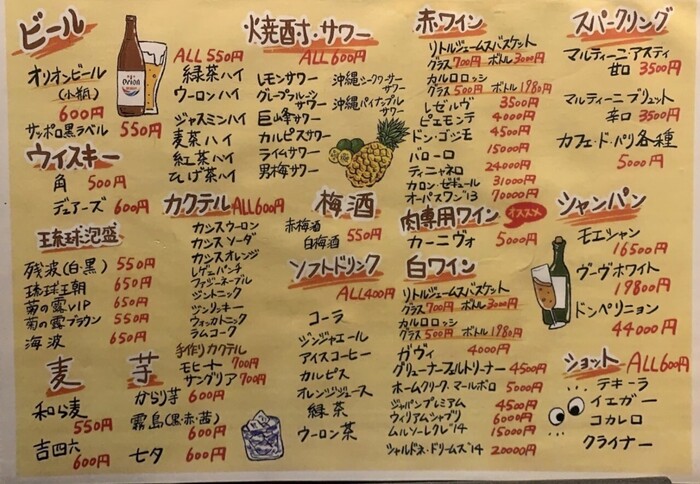 ビール
オリオンビール
(小瓶)
600円
サッポロ黒ラベル 550円
ウイスキー
角 500円
デュアーズ 600円
琉球泡盛
残波(白・黒) 550円
琉球王朝 650円
菊の露VIP 650円
菊の露ブラウン 550円
海波 650円
麦
和ら麦
550円
吉四六
600円
芋
からり芋
600円
霧島(黒・赤・茜)
600円
七夕 600円
焼酎・サワー
ALL 550円
緑茶ハイ
ウーロンハイ
ジャスミンハイ
麦茶ハイ
紅茶ハイ
ひげ茶ハイ
ALL 600円
レモンサワー
グレープフルーツ
サワー
巨峰サワー
カルピスサワー
ライムサワー
男梅サワー
沖縄シークワーサー
サワー
沖縄パイナップル
サワー
カクテル ALL600円
カシスウーロン
カシスソーダ
カシスオレンジ
レゲエパンチ
ファジーネーブル
ジントニック
ジンリッキー
ウォッカトニック
ラムコーク
手作りカクテル
モヒート 700円
サングリア 700円
梅酒
赤梅酒
白梅酒 550円
ソフトドリンク
ALL400円
コーラ
ジンジャエール
アイスコーヒー
カルピス
オレンジジュース
緑茶
ウーロン茶
赤ワイン
リトルジェームスバスケット
グラス 700円 ボトル 3000円
カルロロッシ
グラス 500円 ボトル 1980円
レゼルヴ 3500円
ピエモンテ 4000円
ドン・ゴジモ 4500円
バローロ 15000円
ティニャネロ 24000円
カロン・セギュール 31000円
オーパスワン'13 70000円
肉専用ワイン オススメ
カーニヴォ 5000円
白ワイン
リトルジェームスバスケット
グラス 700円 ボトル 3000円
カルロロッシ
グラス 500円 ボトル 1980円
ガヴィ 4000円
グリューナーフェルトリーナー 4500円
ホームクリーク・マールボロ 5000円
ジャパンプレミアム 4500円
ウィリアムシャブリ 6000円
ムルソーレクレ'14 15000円
シャルドネ・ドリームス'14 20000円
スパークリング
マルティーニアスティ
甘口 3500円
マルティーニブリュット
辛口 3500円
カフェ・ド・パリ各種
5000円
シャンパン
モエシャン
16500円
ヴーヴホワイト
19800円
ドンペリニョン
44000円
ショット ALL 600円
テキーラ
イエガー
コカレロ
クライナー